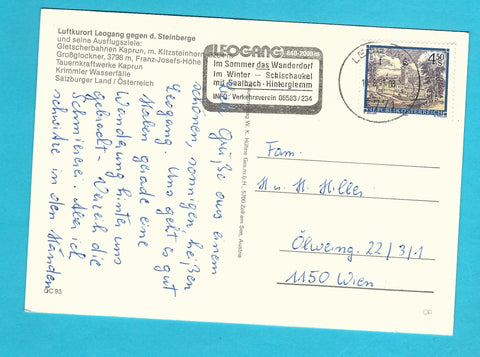 Luftkurort Leogang gegen d. Steinberge
und seine Ausflugsziele:
Gletscherbahnen Kaprun, m. Kitzsteinhorn
Großglockner, 3798 m, Franz-Josefs-Höhe
Tauernkraftwerke Kaprun
Krimmler Wasserfälle
Salzburger Land / Österreich
LEOGANG 840-2000 m
Im Sommer das Wanderdorf
Im Winter — Schischaukel
mit Saalbach-Hinterglemm
INFO: Verkehrsverein 06583/234
4.50
REPUBLIK ÖSTERREICH
Grüße aus einem
schönen, sonnigen, heißen
Leogang. Uns geht es gut
Haben gerade eine
Wanderung hinter uns
gebracht. - Verzeih die
Schmiererei. Aber ich
schwitze in den Händen
Fam.
H. u. H. Hiller
Ölweing. 22/3/1
1150 Wien
W. K. Hühne Ges.m.b.H., 5700 Zell am See, Austria